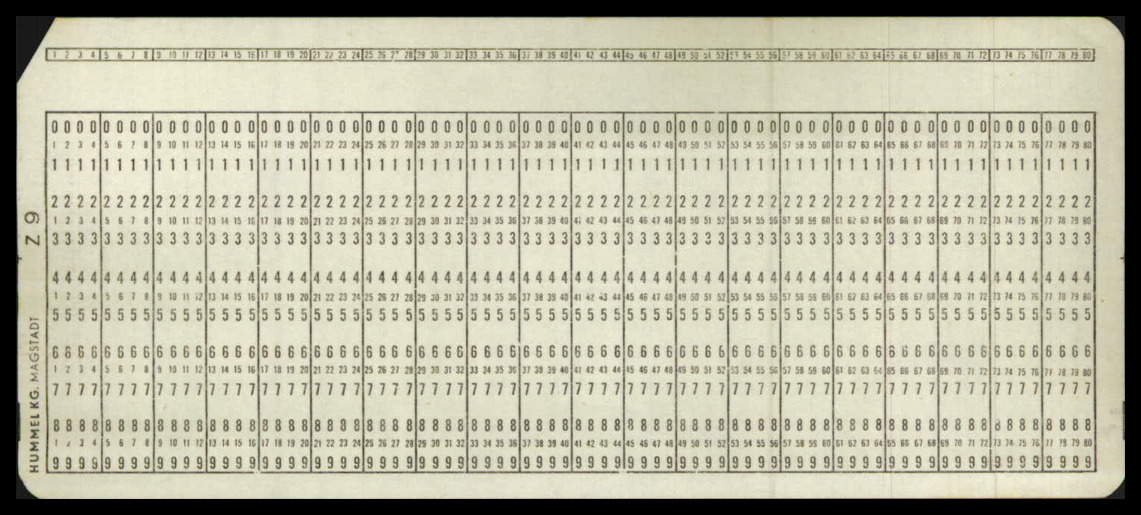 1 2 3 4 5 6 7 8 9 10 11 12 13 14 15 16 17 18 19 20 21 22 23 24 25 26 27 28 29 30 31 32 33 34 35 36 37 38 39 40 41 42 43 44 45 46 47 48 49 50 51 52 53 54 55 56 57 58 59 60 61 62 63 64 65 66 67 68 69 70 71 72 73 74 75 76 77 78 79 80
0 0 0 0 0 0 0 0 0 0 0 0 0 0 0 0 0 0 0 0 0 0 0 0 0 0 0 0 0 0 0 0 0 0 0 0 0 0 0 0 0 0 0 0 0 0 0 0 0 0 0 0 0 0 0 0 0 0 0 0 0 0 0 0 0 0 0 0 0 0 0 0 0 0 0 0 0 0 0 0
1 2 3 4 5 6 7 8 9 10 11 12 13 14 15 16 17 18 19 20 21 22 23 24 25 26 27 28 29 30 31 32 33 34 35 36 37 38 39 40 41 42 43 44 45 46 47 48 49 50 51 52 53 54 55 56 57 58 59 60 61 62 63 64 65 66 67 68 69 70 71 72 73 74 75 76 77 78 79 80
1 1 1 1 1 1 1 1 1 1 1 1 1 1 1 1 1 1 1 1 1 1 1 1 1 1 1 1 1 1 1 1 1 1 1 1 1 1 1 1 1 1 1 1 1 1 1 1 1 1 1 1 1 1 1 1 1 1 1 1 1 1 1 1 1 1 1 1 1 1 1 1 1 1 1 1 1 1 1 1
2 2 2 2 2 2 2 2 2 2 2 2 2 2 2 2 2 2 2 2 2 2 2 2 2 2 2 2 2 2 2 2 2 2 2 2 2 2 2 2 2 2 2 2 2 2 2 2 2 2 2 2 2 2 2 2 2 2 2 2 2 2 2 2 2 2 2 2 2 2 2 2 2 2 2 2 2 2 2 2
1 2 3 4 5 6 7 8 9 10 11 12 13 14 15 16 17 18 19 20 21 22 23 24 25 26 27 28 29 30 31 32 33 34 35 36 37 38 39 40 41 42 43 44 45 46 47 48 49 50 51 52 53 54 55 56 57 58 59 60 61 62 63 64 65 66 67 68 69 70 71 72 73 74 75 76 77 78 79 80
3 3 3 3 3 3 3 3 3 3 3 3 3 3 3 3 3 3 3 3 3 3 3 3 3 3 3 3 3 3 3 3 3 3 3 3 3 3 3 3 3 3 3 3 3 3 3 3 3 3 3 3 3 3 3 3 3 3 3 3 3 3 3 3 3 3 3 3 3 3 3 3 3 3 3 3 3 3 3 3
4 4 4 4 4 4 4 4 4 4 4 4 4 4 4 4 4 4 4 4 4 4 4 4 4 4 4 4 4 4 4 4 4 4 4 4 4 4 4 4 4 4 4 4 4 4 4 4 4 4 4 4 4 4 4 4 4 4 4 4 4 4 4 4 4 4 4 4 4 4 4 4 4 4 4 4 4 4 4 4
1 2 3 4 5 6 7 8 9 10 11 12 13 14 15 16 17 18 19 20 21 22 23 24 25 26 27 28 29 30 31 32 33 34 35 36 37 38 39 40 41 42 43 44 45 46 47 48 49 50 51 52 53 54 55 56 57 58 59 60 61 62 63 64 65 66 67 68 69 70 71 72 73 74 75 76 77 78 79 80
5 5 5 5 5 5 5 5 5 5 5 5 5 5 5 5 5 5 5 5 5 5 5 5 5 5 5 5 5 5 5 5 5 5 5 5 5 5 5 5 5 5 5 5 5 5 5 5 5 5 5 5 5 5 5 5 5 5 5 5 5 5 5 5 5 5 5 5 5 5 5 5 5 5 5 5 5 5 5 5
6 6 6 6 6 6 6 6 6 6 6 6 6 6 6 6 6 6 6 6 6 6 6 6 6 6 6 6 6 6 6 6 6 6 6 6 6 6 6 6 6 6 6 6 6 6 6 6 6 6 6 6 6 6 6 6 6 6 6 6 6 6 6 6 6 6 6 6 6 6 6 6 6 6 6 6 6 6 6 6
1 2 3 4 5 6 7 8 9 10 11 12 13 14 15 16 17 18 19 20 21 22 23 24 25 26 27 28 29 30 31 32 33 34 35 36 37 38 39 40 41 42 43 44 45 46 47 48 49 50 51 52 53 54 55 56 57 58 59 60 61 62 63 64 65 66 67 68 69 70 71 72 73 74 75 76 77 78 79 80
7 7 7 7 7 7 7 7 7 7 7 7 7 7 7 7 7 7 7 7 7 7 7 7 7 7 7 7 7 7 7 7 7 7 7 7 7 7 7 7 7 7 7 7 7 7 7 7 7 7 7 7 7 7 7 7 7 7 7 7 7 7 7 7 7 7 7 7 7 7 7 7 7 7 7 7 7 7 7 7
8 8 8 8 8 8 8 8 8 8 8 8 8 8 8 8 8 8 8 8 8 8 8 8 8 8 8 8 8 8 8 8 8 8 8 8 8 8 8 8 8 8 8 8 8 8 8 8 8 8 8 8 8 8 8 8 8 8 8 8 8 8 8 8 8 8 8 8 8 8 8 8 8 8 8 8 8 8 8 8
1 2 3 4 5 6 7 8 9 10 11 12 13 14 15 16 17 18 19 20 21 22 23 24 25 26 27 28 29 30 31 32 33 34 35 36 37 38 39 40 41 42 43 44 45 46 47 48 49 50 51 52 53 54 55 56 57 58 59 60 61 62 63 64 65 66 67 68 69 70 71 72 73 74 75 76 77 78 79 80
9 9 9 9 9 9 9 9 9 9 9 9 9 9 9 9 9 9 9 9 9 9 9 9 9 9 9 9 9 9 9 9 9 9 9 9 9 9 9 9 9 9 9 9 9 9 9 9 9 9 9 9 9 9 9 9 9 9 9 9 9 9 9 9 9 9 9 9 9 9 9 9 9 9 9 9 9 9 9 9
HUMMEL KG. MAGSTADT Z 9